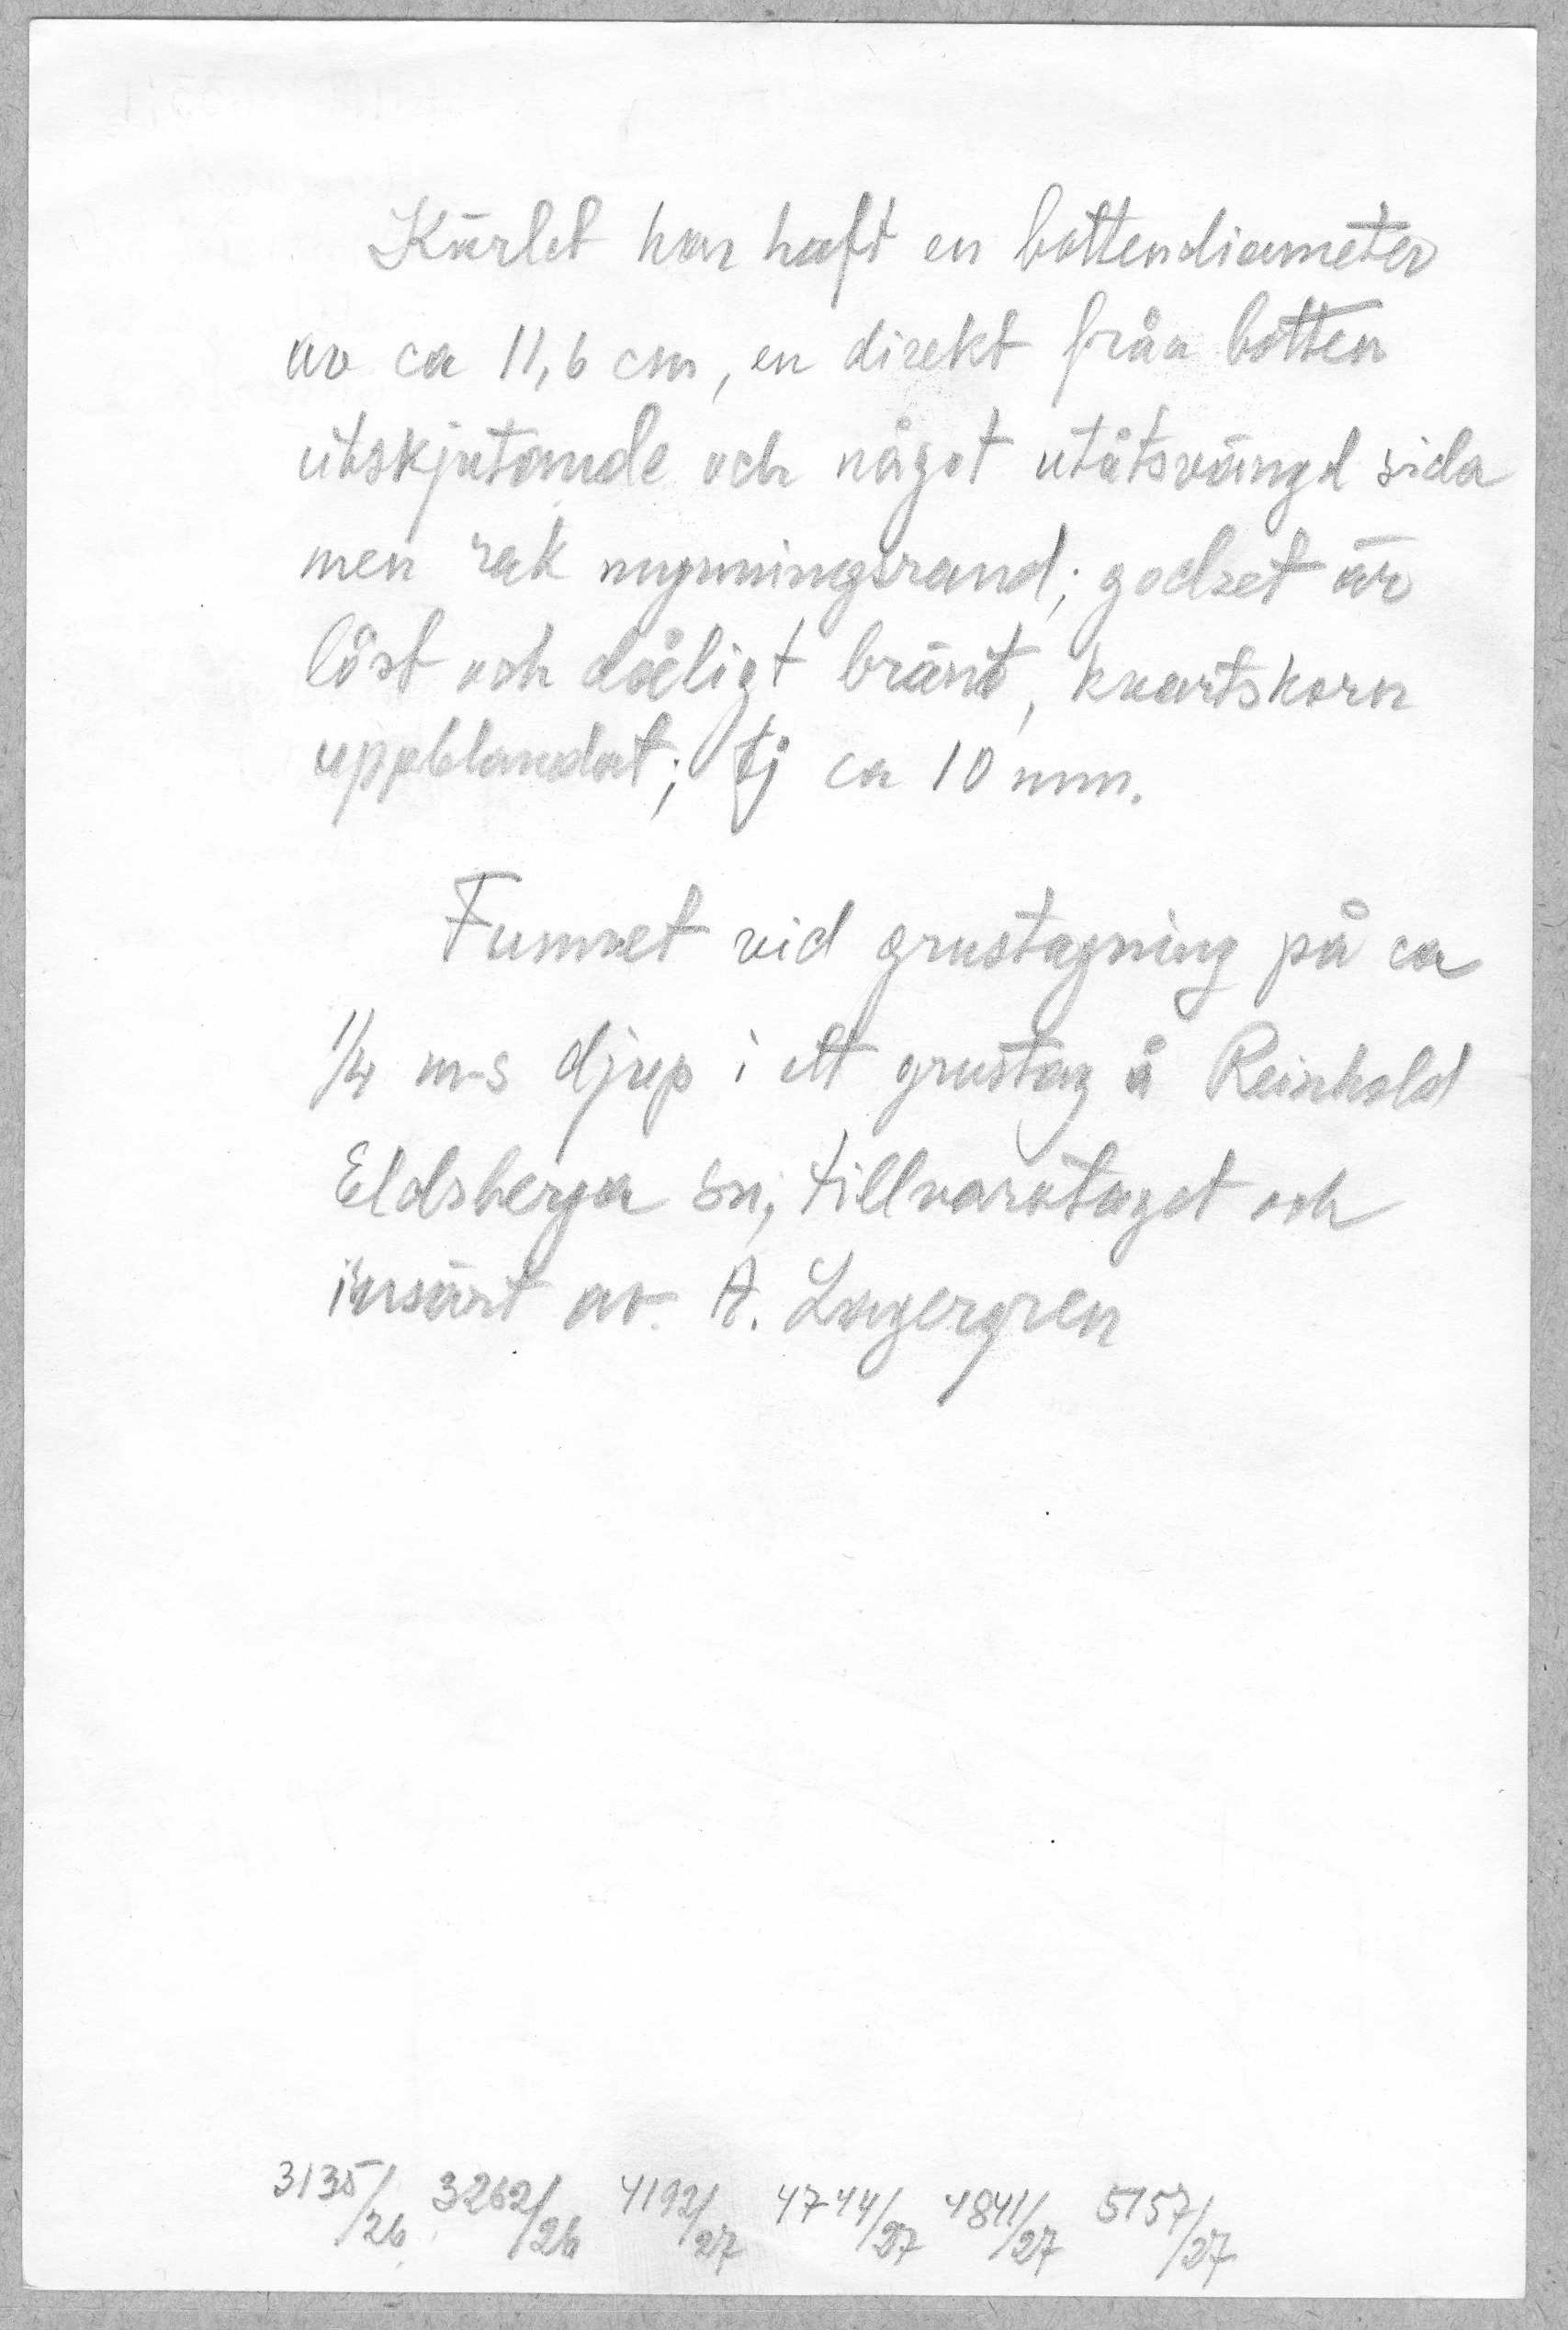 Kärlet har haft en bottendiameter
av ca 11,6 cm, en direkt från botten
utskjutande och något utåtsvängd sida
men rak mynningsrand; godset är
löst och dåligt bränt, kvartskorn
uppblandat; tj ca 10 mm.
Funnet vid grustagning på ca
1/4 m-s djup i ett grustag å Reinhold
Eldsberga sn; tillvarataget och
insänt av A. Lagergren
3135/26 3262/26 4192/27 4744/27 4841/27 5157/27